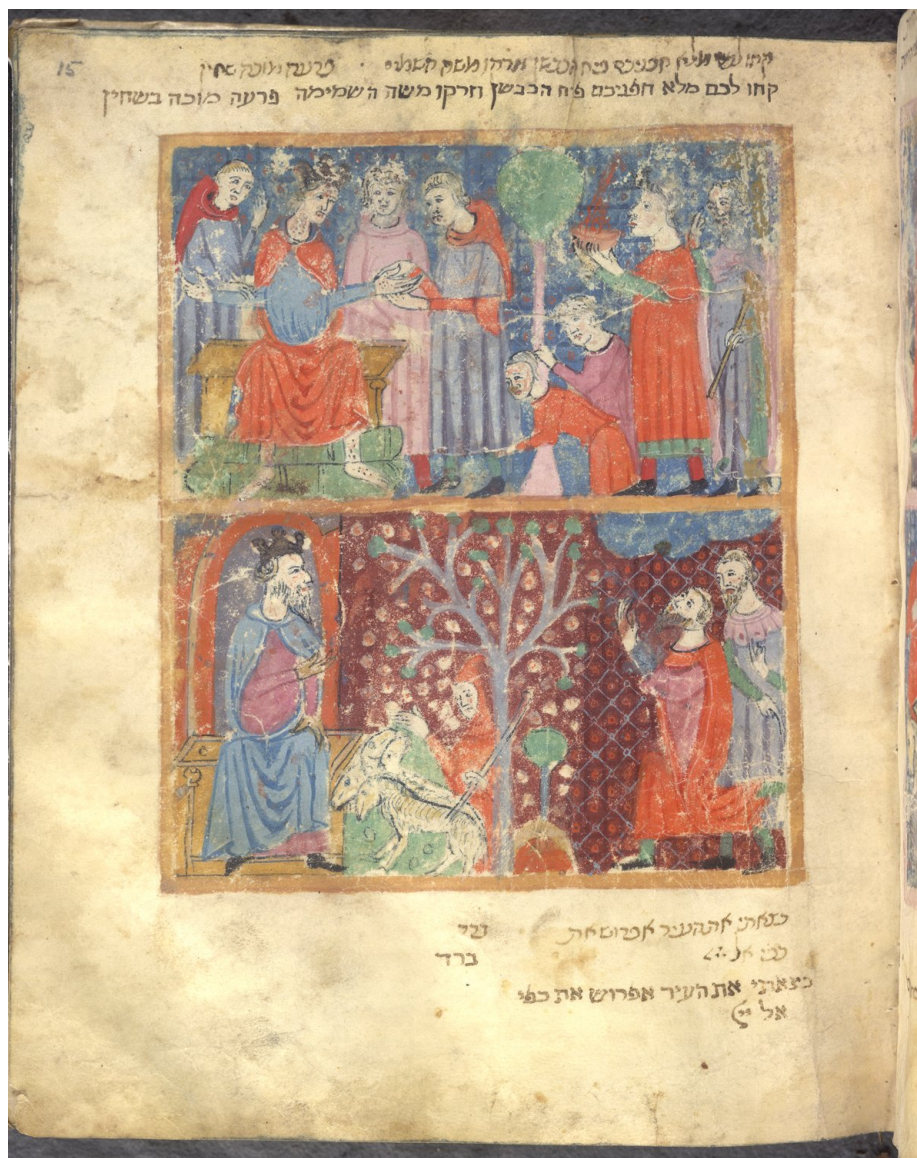 15
קחו לכם מלא חפניכם פיח הכבשן וזרקו משה השמימה פרעה מוכה בשחין
קחו לכם מלא חפניכם פיח הכבשן וזרקו משה השמימה פרעה מוכה בשחין
כצאתי את העיר אפרוש את
כפי אל
ברד
כצאתי את העיר אפרוש את כפי
אל ייי